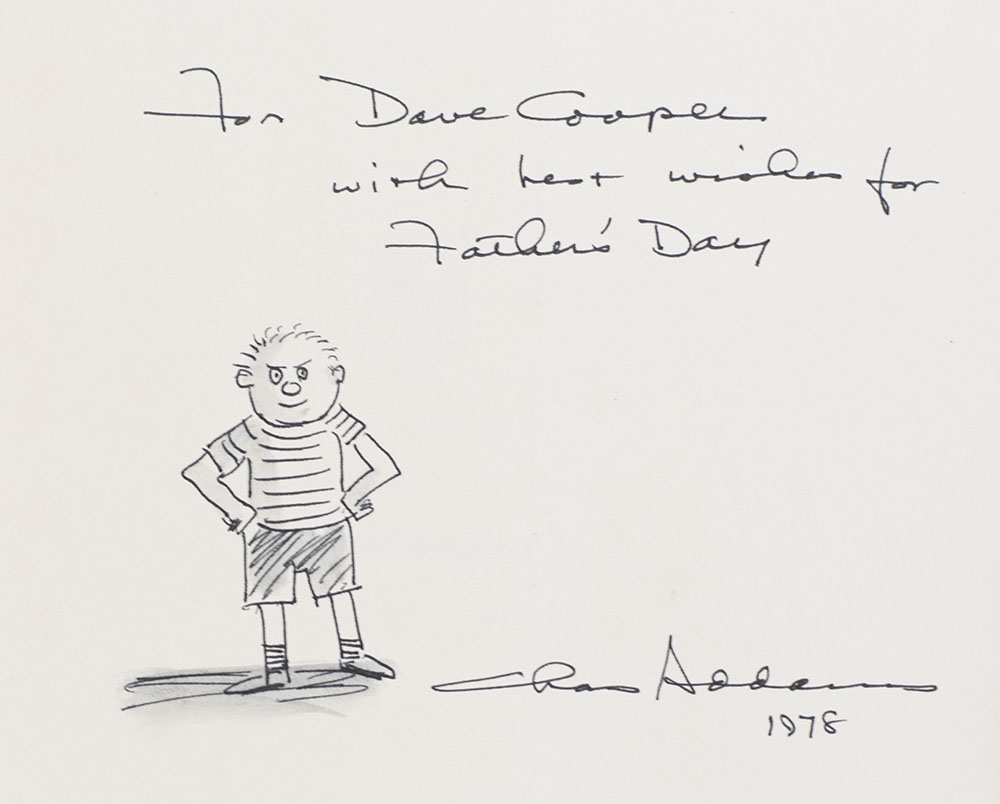 For Dave Cooper
with best wishes for
Father's Day
Chas Addams
1978